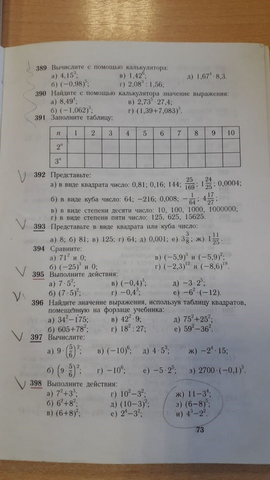 389 Вычислите с помощью калькулятора:
а) 4,15³; в) 1,42⁶; д) 1,67⁴ · 8,3.
б) (−0,98)⁵; г) 2,08³ : 1,56;
390 Найдите с помощью калькулятора значение выражения:
а) 8,49³; в) 2,73³ · 27,4;
б) (−1,062)³; г) (1,39+7,083)³.
391 Заполните таблицу:
n 1 2 3 4 5 6 7 8 9 10
2ⁿ
3ⁿ
392 Представьте:
а) в виде квадрата число: 0,81; 0,16; 144; 25/169; 1 24/25; 0,0004;
б) в виде куба число: 64; −216; 0,008; −1/64; 4 17/27;
в) в виде степени десяти число: 10, 100, 1000, 1000000;
г) в виде степени пяти число: 125, 625, 15625.
393 Представьте в виде квадрата или куба число:
а) 8; б) 81; в) 125; г) 64; д) 0,001; е) 3 3/8; ж) 1 11/25
394 Сравните:
а) 71² и 0; в) (−5,9)³ и (−5,9)²;
б) (−25)³ и 0; г) (−2,3)¹² и (−8,6)¹⁹
395 Выполните действия:
а) 7 · 5²; в) (−0,4)³; д) −3 · 2⁵;
б) (7 · 5)²; г) −0,4³; е) −6² · (−12).
396 Найдите значение выражения, используя таблицу квадратов,
помещённую на форзаце учебника:
а) 34²−175; в) 42² · 9; д) 75²+25²;
б) 605+78²; г) 18² : 27; е) 59²−36².
397 Вычислите:
а) 9 · (5/6)²; в) (−10)⁶; д) 4 · 5³; ж) −2⁴ · 15;
б) (9 · 5/6)²; г) −10⁶; е) −5 · 2⁵; з) 2700 · (−0,1)³.
398 Выполните действия:
а) 7²+3³; г) 10²−3²; ж) 11−3⁴;
б) 6²+8²; д) (10−3)²; з) (6−8)⁵;
в) (6+8)²; е) 2⁴−3²; и) 4³−2².
73